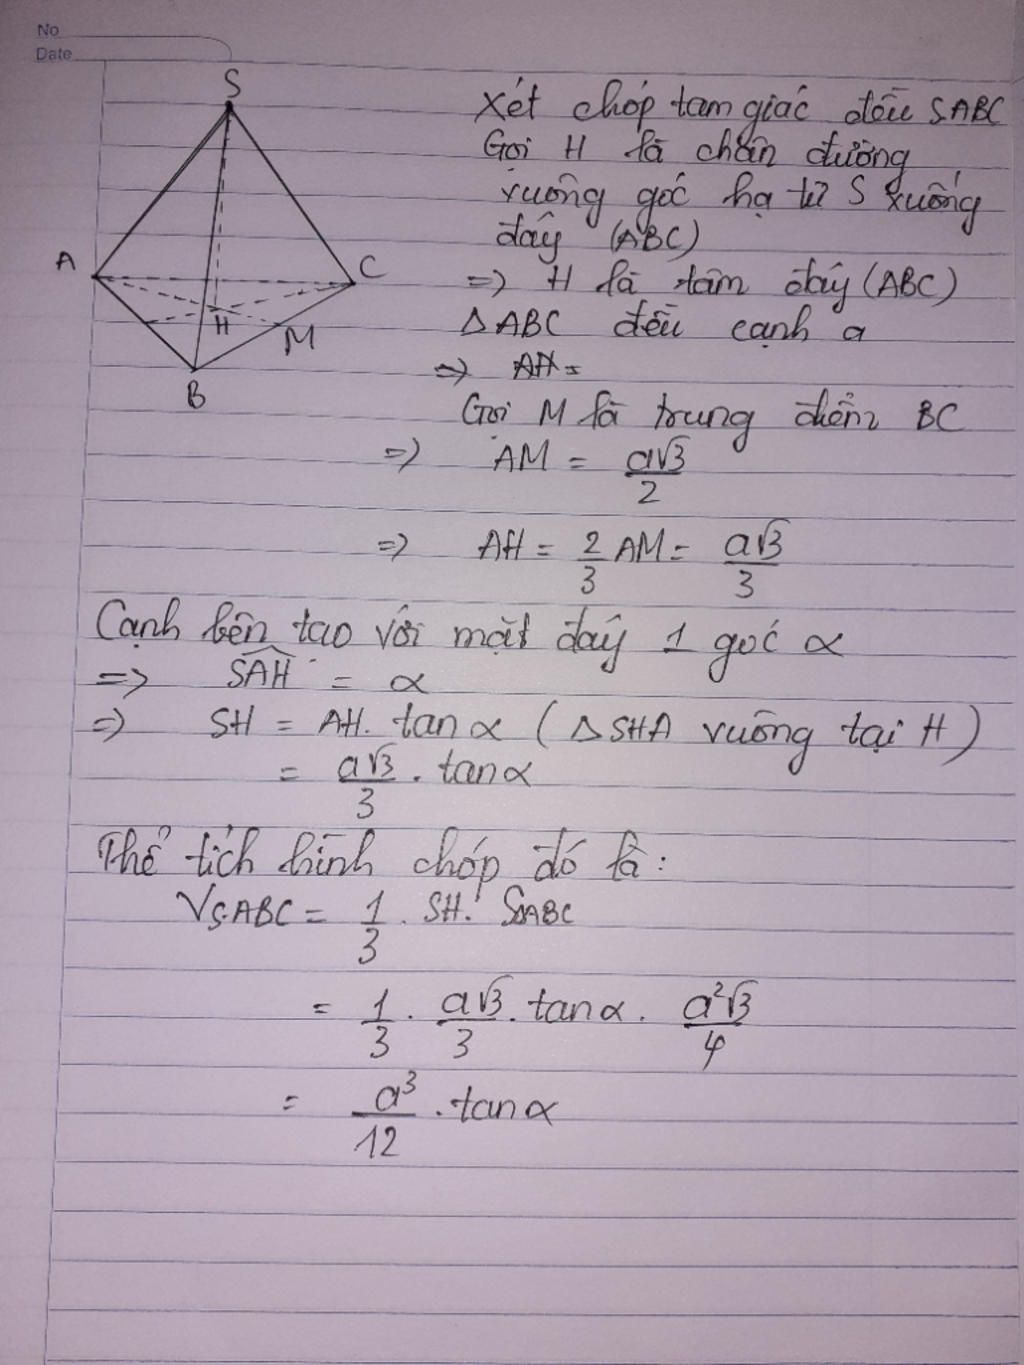 No
Date
S
A
C
H
M
B
Xét chóp tam giác đều S.ABC
Gọi H là chân đường
vuông góc hạ từ S xuống
đáy (ABC)
=> H là tâm đáy (ABC)
△ABC đều cạnh a
=> AH =
Gọi M là trung điểm BC
=> AM = a√3/2
=> AH = 2/3 AM = a√3/3
Cạnh bên tạo với mặt đáy 1 góc α
=> SAH = α
=> SH = AH. tanα (△SHA vuông tại H)
= a√3/3 . tanα
Thể tích hình chóp đó là:
VS.ABC = 1/3 . SH. S△ABC
= 1/3 . a√3/3 . tanα . a²√3/4
= a³/12 . tanα